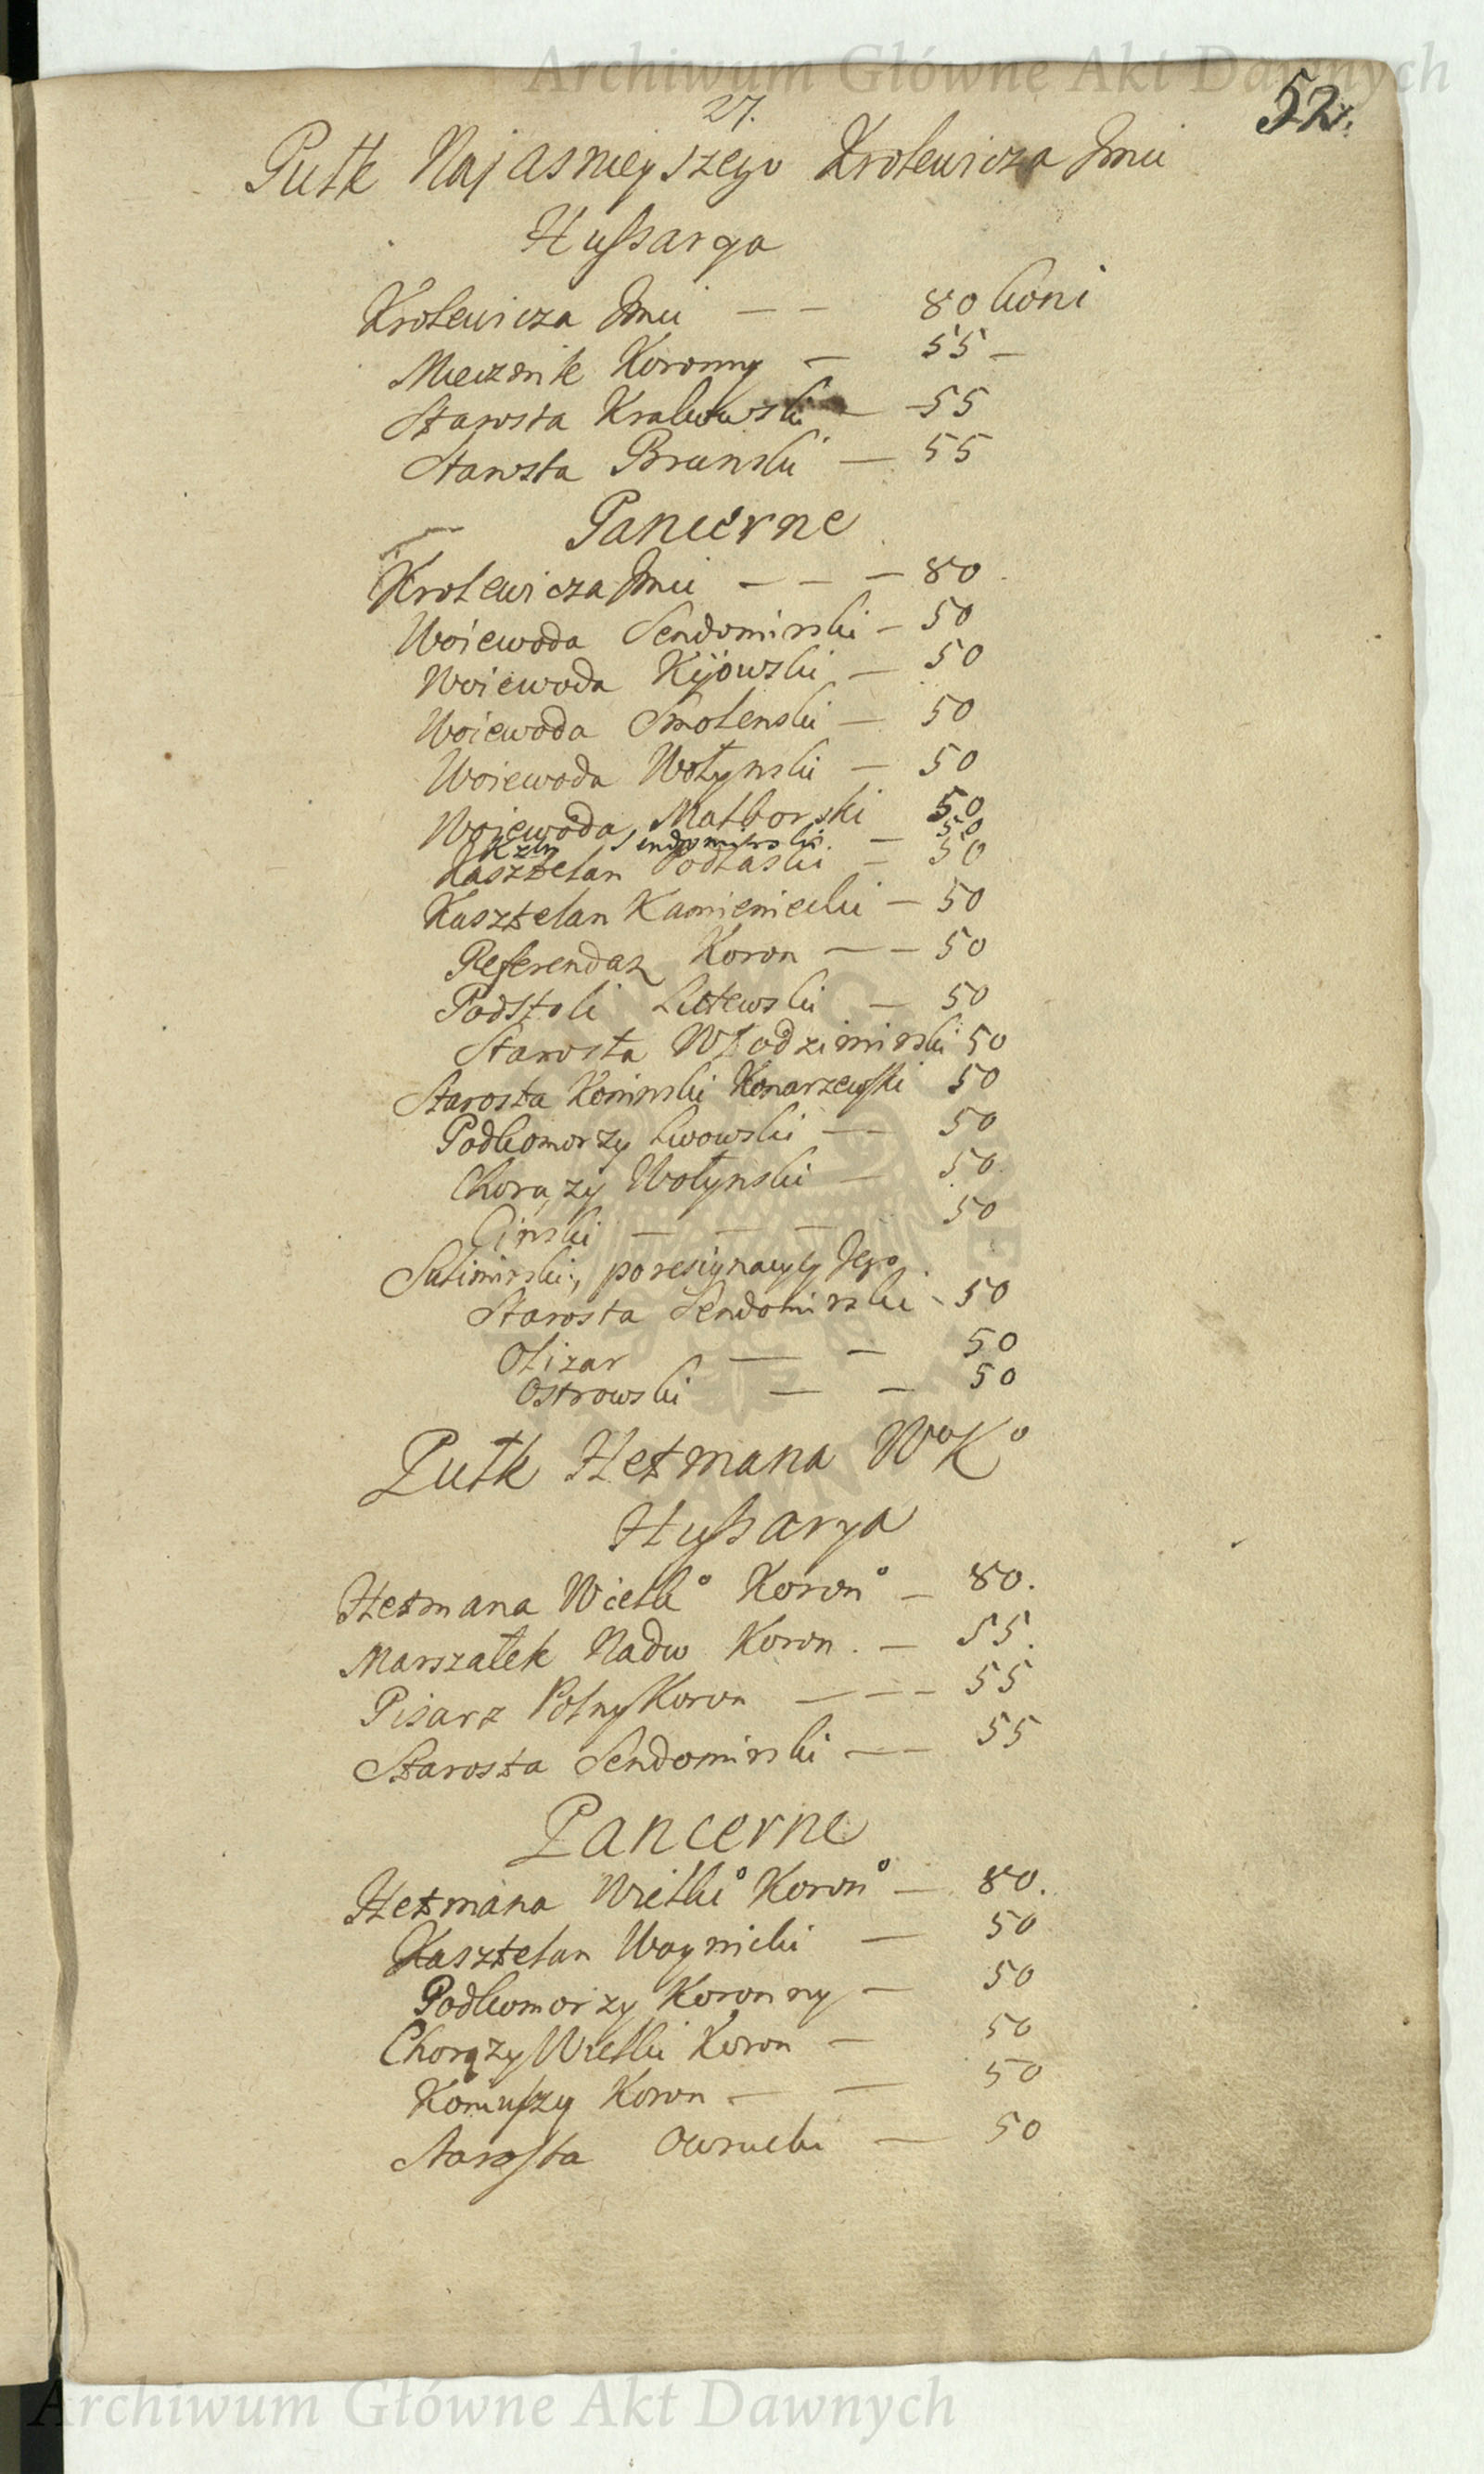 Archiwum Główne Akt Dawnych
27.
52.
Pułk Najasnieyszego Krolewicza Jmci
Hussarya
Krolewicza Jmci — — 80 koni
Miecznik Koronny — 55 —
Starosta Krakowski — 55
Starosta Branski — 55
Pancerne
Krolewicza Jmci — — — 80
Woiewoda Sendomirski — 50
Woiewoda Kijowski — 50
Woiewoda Smolenski — 50
Woiewoda Wołynski — 50
Woiewoda Malborski 50
Kztn Sendomirski. — 50
Kasztelan Podlaski — 50
Kasztelan Kamieniecki — 50
Referendarz Koron — — 50
Podstoli Litewski — 50
Starosta Włodzimirski 50
Starosta Koninski Konarzewski 50
Podkomorzy Lwowski — 50
Chorązy Wołynski — 50
Cinski — — — 50
Sulimirski, po resignacyi Jego
Starosta Sendomirski - 50
Olizar — — 50
Ostrowski — — 50
Pułk Hetmana Wo Ko
Hussarya
Hetmana Wielko Korono — 80.
Marszałek Nadw Koron. — 55.
Pisarz Polny Koron — — — 55
Starosta Sendomirski — — 55
Pancerne
Hetmana Wielkio Korono — 80.
Kasztelan Woynicki — 50
Podkomorzy Koronny — 50
Chorązy Wielki Koron — 50
Koniuszy Koron — — 50
Starosta Owrucki — 50
Archiwum Główne Akt Dawnych